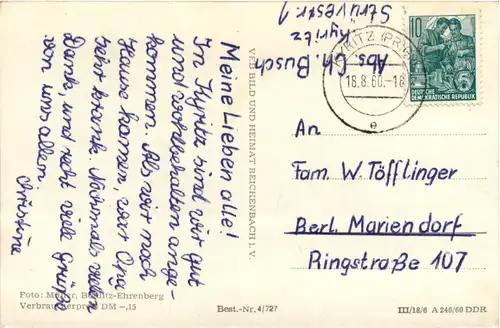 Meine Lieben alle!
In Kyritz sind wir gut
und wohlbehalten ange-
kommen. Als wir nach
Hause kamen, war Opa
sehr krank. Nochmals vielen
Dank, und recht viele Grüße
von uns allen.
Christine
VEB BILD UND HEIMAT REICHENBACH I. V.
Abs. Ch. Busch
Kyritz
Struvestr. 1
KYRITZ (PR
18.8.60.-18
e
10
DEUTSCHE
DEMOKRATISCHE REPUBLIK
An
Fam. W. Töfflinger
Berl. Mariendorf
Ringstraße 107
Foto: Ehrenberg
Verbraucherpreis DM -,15
Best.-Nr. 4/727
III/18/6 A 246/60 DDR